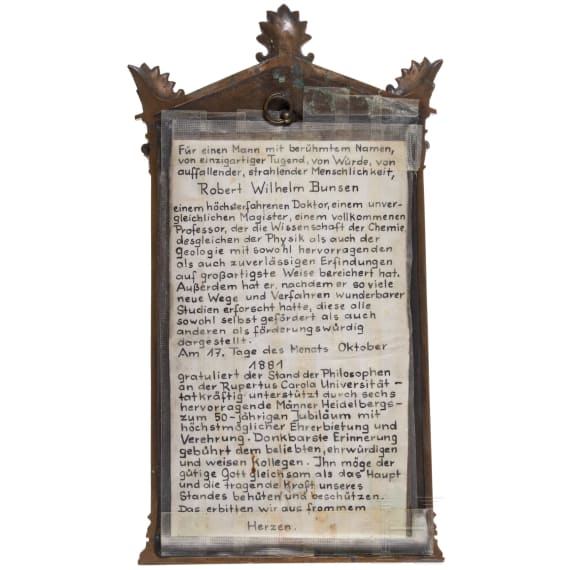 Für einen Mann mit berühmtem Namen,
von einzigartiger Tugend, von Würde, von
auffallender, strahlender Menschlichkeit,
Robert Wilhelm Bunsen
einem höchsterfahrenen Doktor, einem unver-
gleichlichen Magister, einem vollkommenen
Professor, der die Wissenschaft der Chemie
desgleichen der Physik als auch der
Geologie mit sowohl hervorragenden
als auch zuverlässigen Erfindungen
auf großartigste Weise bereichert hat.
Außerdem hat er, nachdem er so viele
neue Wege und Verfahren wunderbarer
Studien erforscht hatte, diese alle
sowohl selbst gefördert als auch
anderen als förderungswürdig
dargestellt.
Am 17. Tage des Monats Oktober
1881
gratuliert der Stand der Philosophen
an der Rupertus Carola Universität –
tatkräftig unterstützt durch sechs
hervorragende Männer Heidelbergs-
zum 50-jährigen Jubiläum mit
höchstmöglicher Ehrerbietung und
Verehrung. Dankbarste Erinnerung
gebührt dem beliebten, ehrwürdigen
und weisen Kollegen. Ihn möge der
gütige Gott gleichsam als das Haupt
und die tragende Kraft unseres
Standes behüten und beschützen.
Das erbitten wir aus frommem
Herzen.